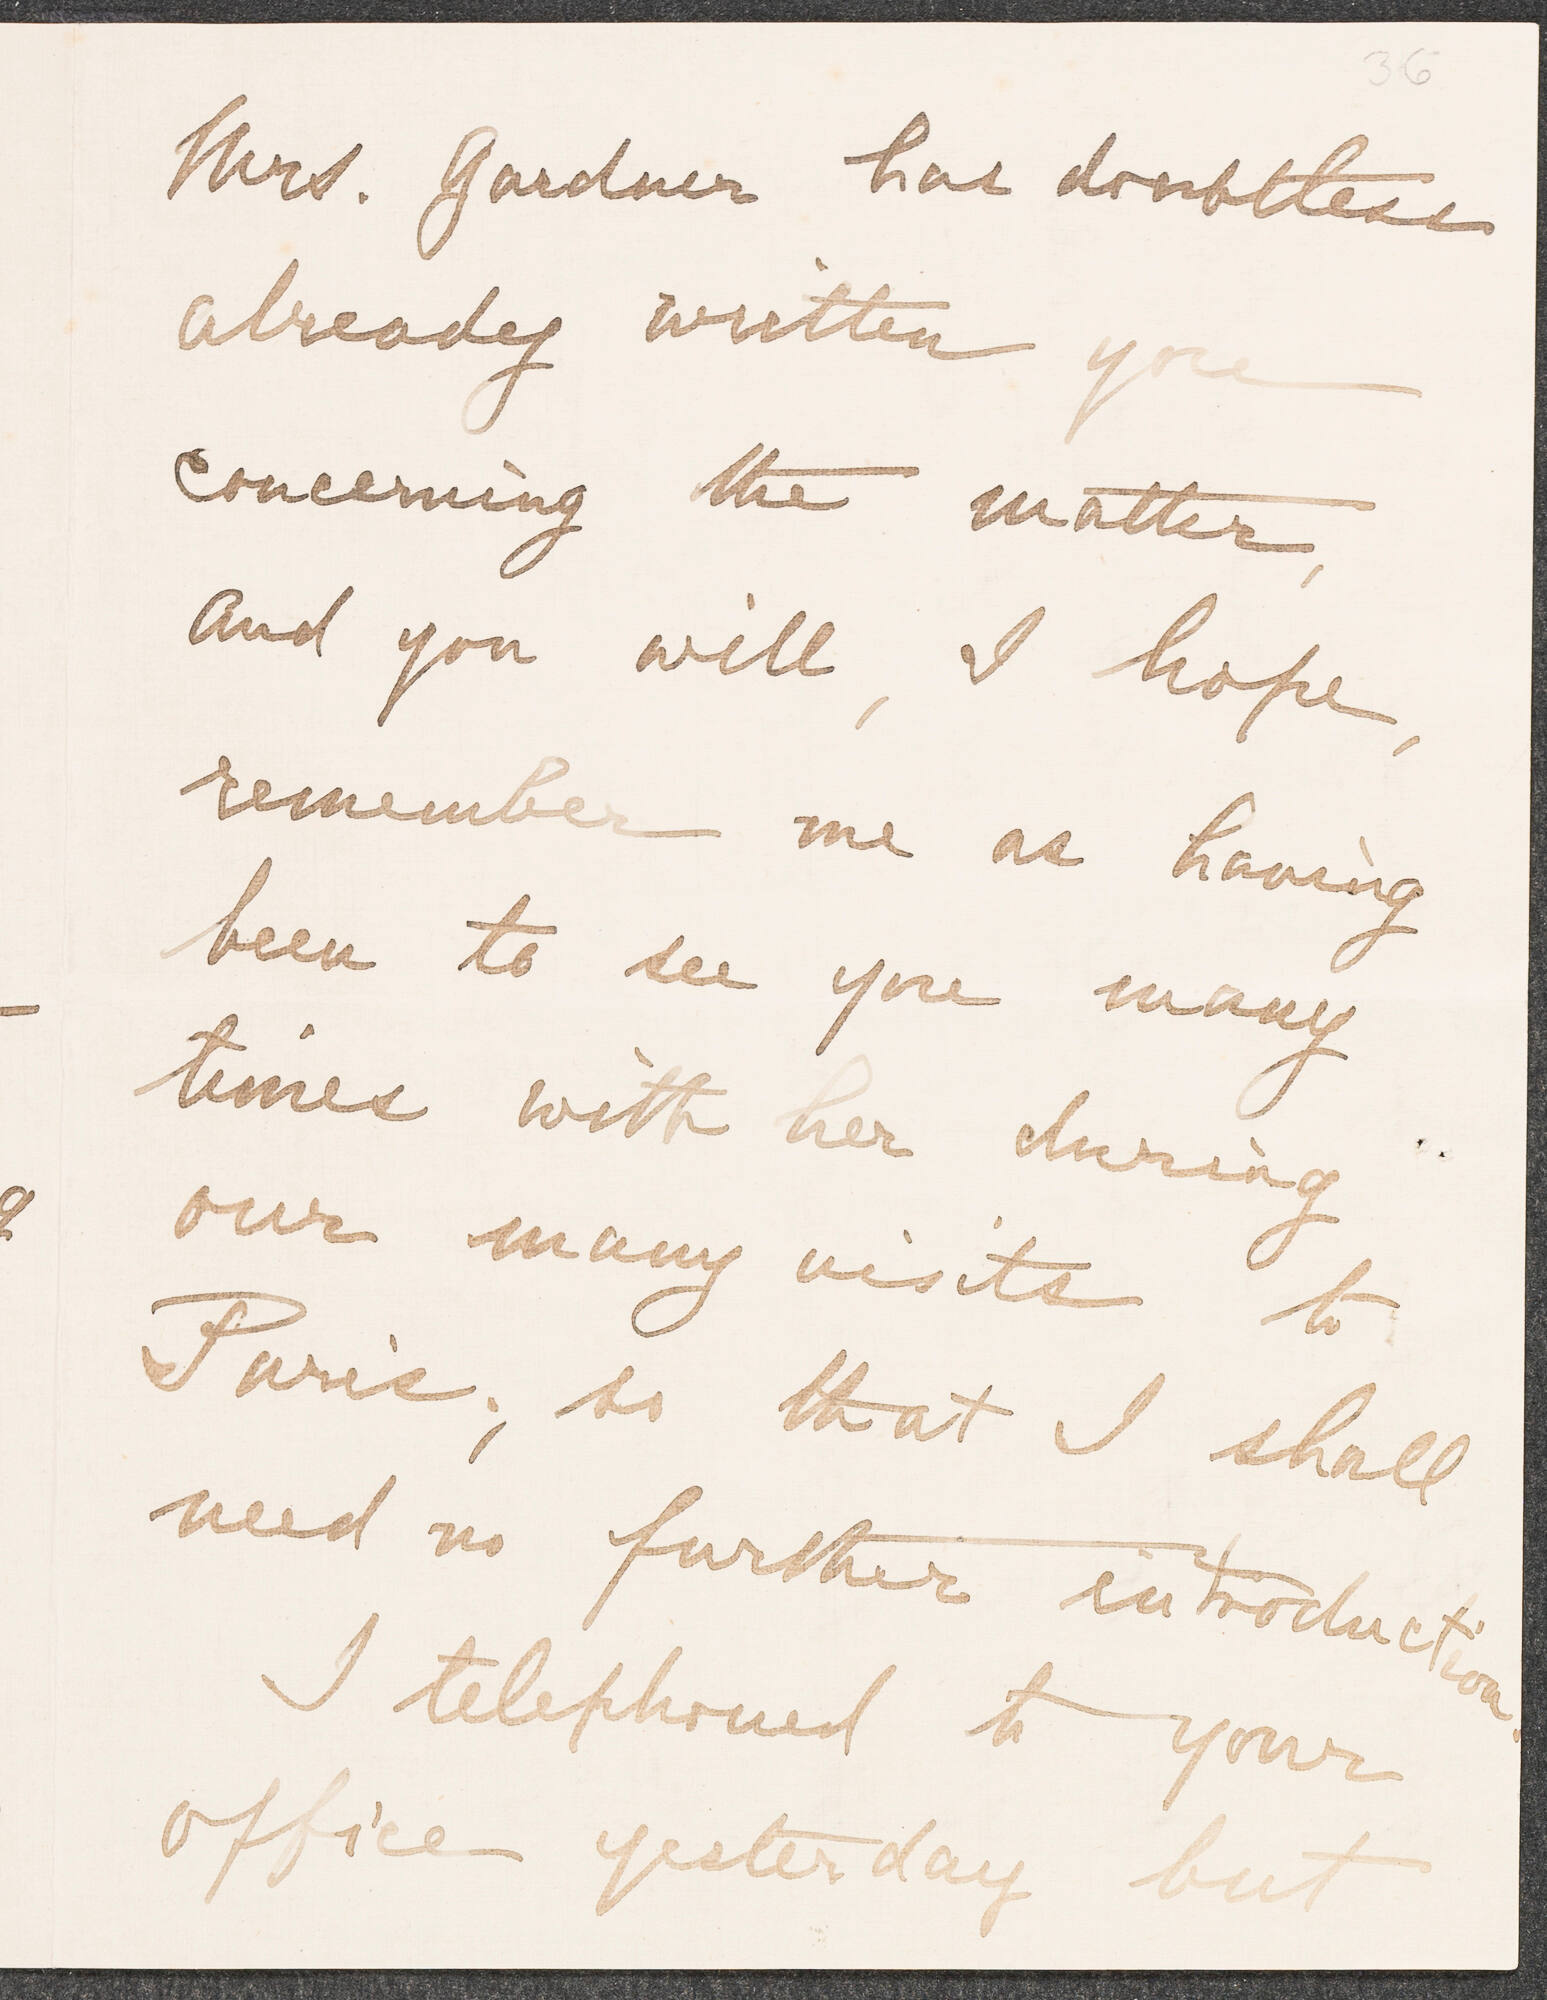 36
Mrs. Gardner has doubtless
already written you
concerning the matter,
and you will, I hope,
remember me as having
been to see you many
times with her during
our many visits to
Paris; so that I shall
need no further introduction.
I telephoned to your
office yesterday but